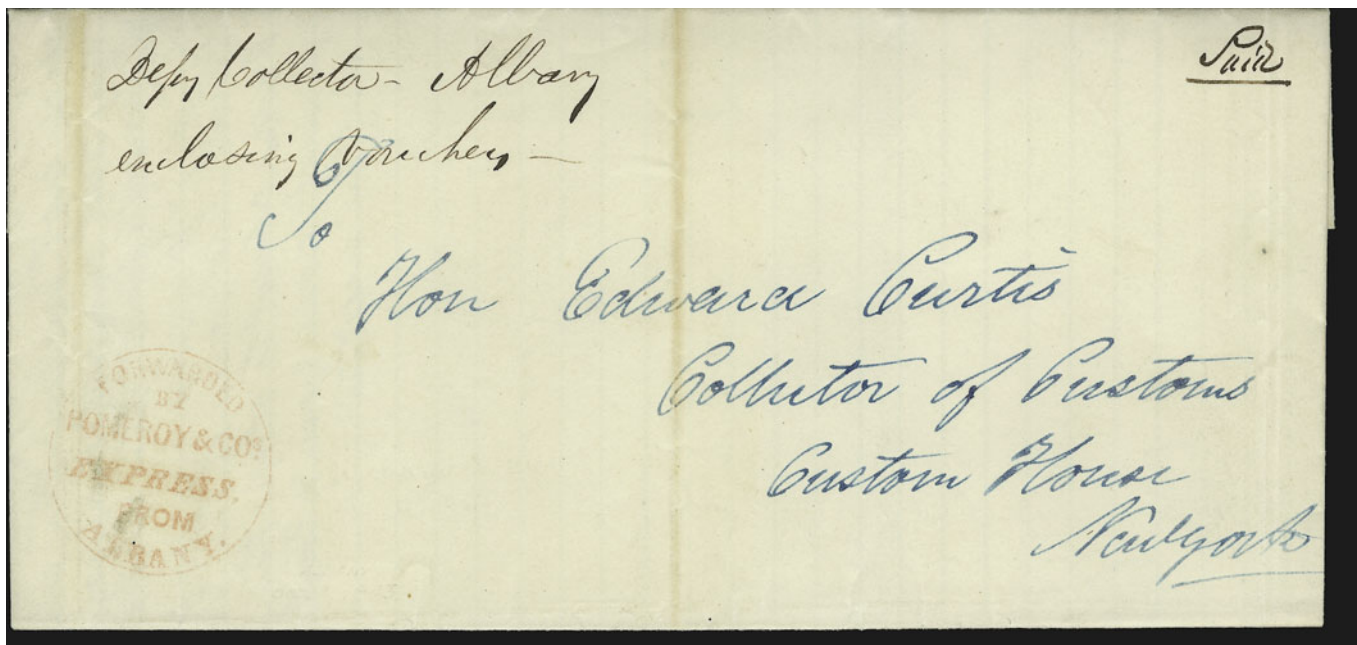 Depy Collector - Albany
enclosing Vouchers -
Paid
To
Hon Edward Curtis
Collector of Customs
Custom House
New York
FORWARDED
BY
POMEROY & COS
EXPRESS,
FROM
ALBANY.